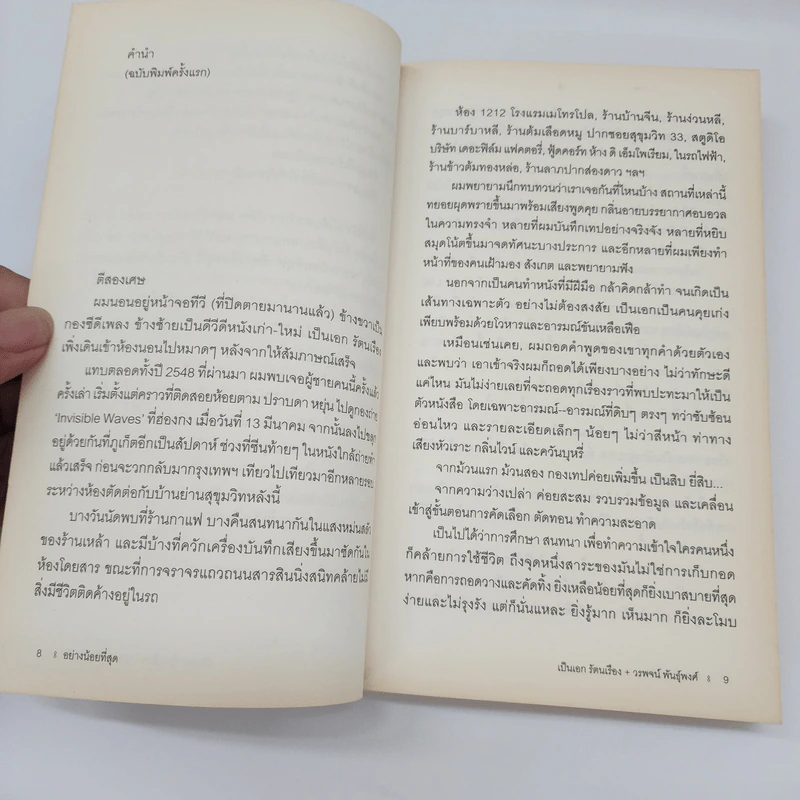 คำนำ
(ฉบับพิมพ์ครั้งแรก)
ตีสองเศษ
ผมนอนอยู่หน้าจอทีวี (ที่ปิดตายมานานแล้ว) ข้างขวาเป็น
กองซีดีเพลง ข้างซ้ายเป็นดีวีดีหนังเก่า-ใหม่ เป็นเอก รัตนเรือง
เพิ่งเดินเข้าห้องนอนไปหมาดๆ หลังจากให้สัมภาษณ์เสร็จ
แทบตลอดทั้งปี 2548 ที่ผ่านมา ผมพบเจอผู้ชายคนนี้ครั้งแล้ว
ครั้งเล่า เริ่มตั้งแต่คราวที่ติดสอยห้อยตาม ปราบดา หยุ่น ไปดูกองถ่าย
'Invisible Waves' ที่ฮ่องกง เมื่อวันที่ 13 มีนาคม จากนั้นลงไปขลุก
อยู่ด้วยกันที่ภูเก็ตอีกเป็นสัปดาห์ ช่วงที่ซีนท้ายๆ ในหนังใกล้ถ่ายทำ
แล้วเสร็จ ก่อนจะวกกลับมากรุงเทพฯ เทียวไปเทียวมาอีกหลายรอบ
ระหว่างห้องตัดต่อกับบ้านย่านสุขุมวิทหลังนี้
บางวันนัดพบที่ร้านกาแฟ บางคืนสนทนากันในแสงหม่นสลัว
ของร้านเหล้า และมีบ้างที่ควักเครื่องบันทึกเสียงขึ้นมาซัดกันใน
ห้องโดยสาร ขณะที่การจราจรแถวถนนสารสินนิ่งสนิทคล้ายไม่มี
สิ่งมีชีวิตติดค้างอยู่ในรถ
8 อย่างน้อยที่สุด
ห้อง 1212 โรงแรมเมโทรโปล, ร้านบ้านจีน, ร้านง่วนหลี,
ร้านบาร์บาหลี, ร้านต้มเลือดหมู ปากซอยสุขุมวิท 33, สตูดิโอ
บริษัท เดอะฟิล์ม แฟคตอรี่, ฟู้ดคอร์ท ห้าง ดิ เอ็มโพเรียม, ในรถไฟฟ้า,
ร้านข้าวต้มทองหล่อ, ร้านลาภปากส่องดาว ฯลฯ
ผมพยายามนึกทบทวนว่าเราเจอกันที่ไหนบ้าง สถานที่เหล่านี้
ทยอยผุดพรายขึ้นมาพร้อมเสียงพูดคุย กลิ่นอายบรรยากาศอบอวล
ในความทรงจำ หลายที่ผมบันทึกเทปอย่างจริงจัง หลายที่หยิบ
สมุดโน้ตขึ้นมาจดทัศนะบางประการ และอีกหลายที่ผมเพียงทำ
หน้าที่ของคนเฝ้ามอง สังเกต และพยายามฟัง
นอกจากเป็นคนทำหนังที่มีฝีมือ กล้าคิดกล้าทำ จนเกิดเป็น
เส้นทางเฉพาะตัว อย่างไม่ต้องสงสัย เป็นเอกเป็นคนคุยเก่ง
เพียบพร้อมด้วยโวหารและอารมณ์ขันเหลือเฟือ
เหมือนเช่นเคย, ผมถอดคำพูดของเขาทุกคำด้วยตัวเอง
และพบว่า เอาเข้าจริงผมก็ถอดได้เพียงบางอย่าง ไม่ว่าทักษะดี
แค่ไหน มันไม่ง่ายเลยที่จะถอดทุกเรื่องราวที่พบปะทะมาให้เป็น
ตัวหนังสือ โดยเฉพาะอารมณ์-อารมณ์ที่ดิบๆ ตรงๆ ทว่าซับซ้อน
อ่อนไหว และรายละเอียดเล็กๆ น้อยๆ ไม่ว่าสีหน้า ท่าทาง
เสียงหัวเราะ กลิ่นไวน์ และควันบุหรี่
จากม้วนแรก ม้วนสอง กองเทปค่อยเพิ่มขึ้น เป็นสิบ ยี่สิบ...
จากความว่างเปล่า ค่อยสะสม รวบรวมข้อมูล และเคลื่อน
เข้าสู่ขั้นตอนการคัดเลือก ตัดทอน ทำความสะอาด
เป็นไปได้ว่าการศึกษา สนทนา เพื่อทำความเข้าใจใครคนหนึ่ง
ก็คล้ายการใช้ชีวิต ถึงจุดหนึ่งสาระของมันไม่ใช่การเก็บกอด
หากคือการถอดวางและคัดทิ้ง ยิ่งเหลือน้อยที่สุดก็ยิ่งเบาสบายที่สุด
ง่ายและไม่รุงรัง แต่ก็นั่นแหละ ยิ่งรู้มาก เห็นมาก ก็ยิ่งละโมบ
เป็นเอก รัตนเรือง + วรพจน์ พันธุ์พงศ์ 9